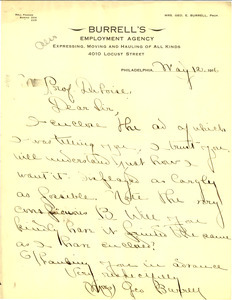 MRS. GEO. S. BURRELL, Prop.
BURRELL'S
EMPLOYMENT AGENCY
EXPRESSING, MOVING AND HAULING OF ALL KINDS
4010 LOCUST STREET
PHILADELPHIA, May 12
Prof DuBois.
Dear Sir,
I enclose the ad of which
I was telling you, I trust you
will understand just how I
want it as
possible. Note the very
B. Will you
kindly have it the same
as I have enclosed
Thanking you in advance
Very respectfully
(Mrs) Geo Burrell